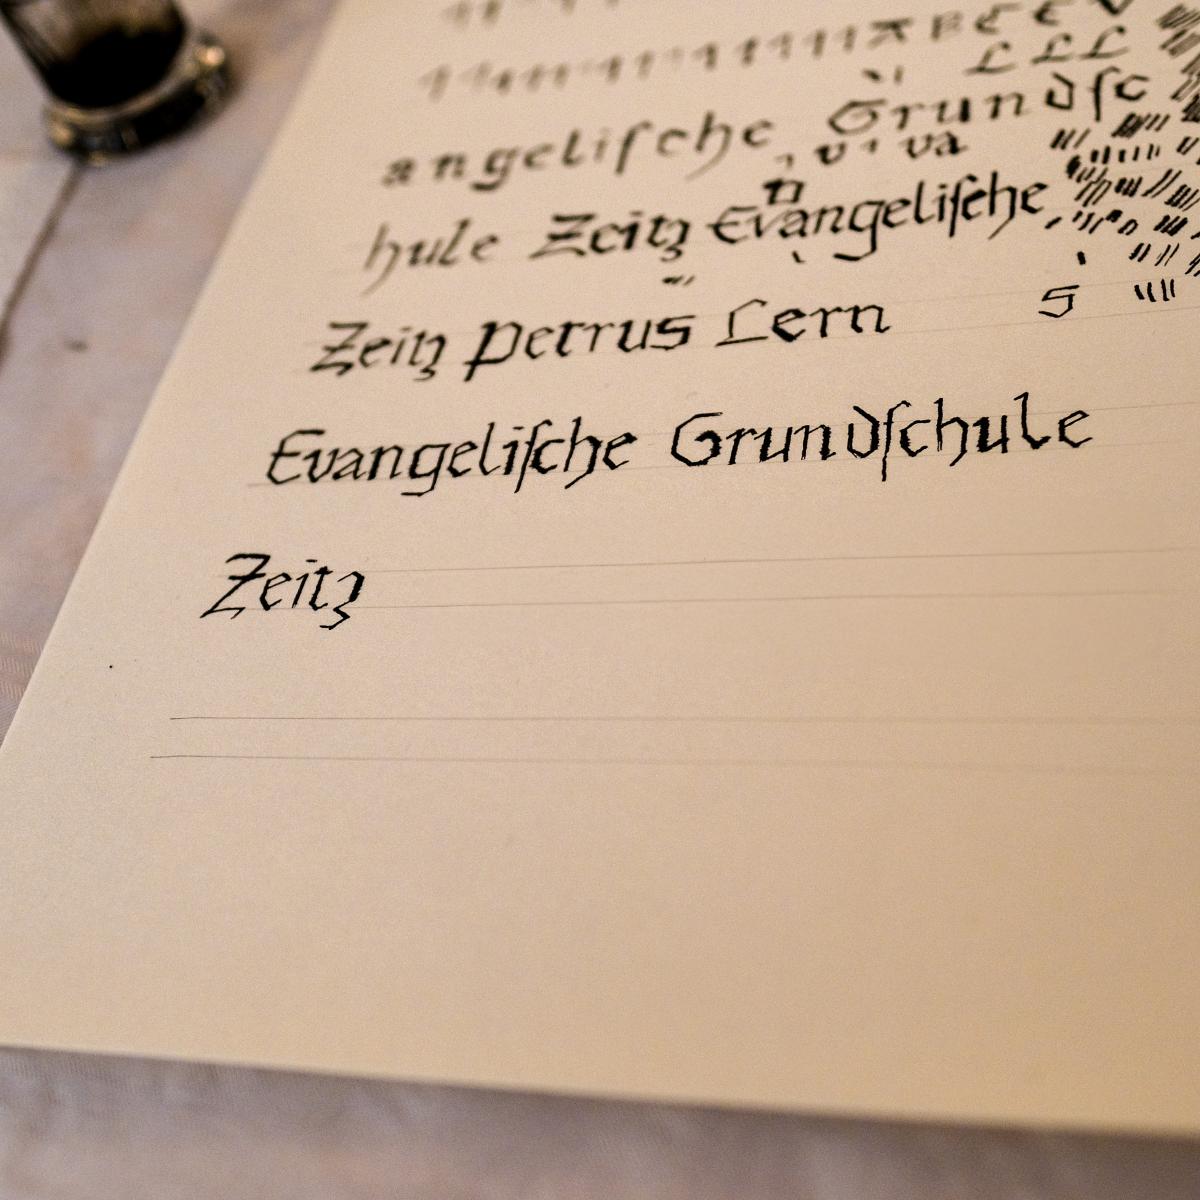 A B E E E V
L L L
angeliſche Grundſc
v va
hule Zeitz Evangeliſche
Zeitz Petrus Lern
S
Evangeliſche Grundſchule
Zeitz